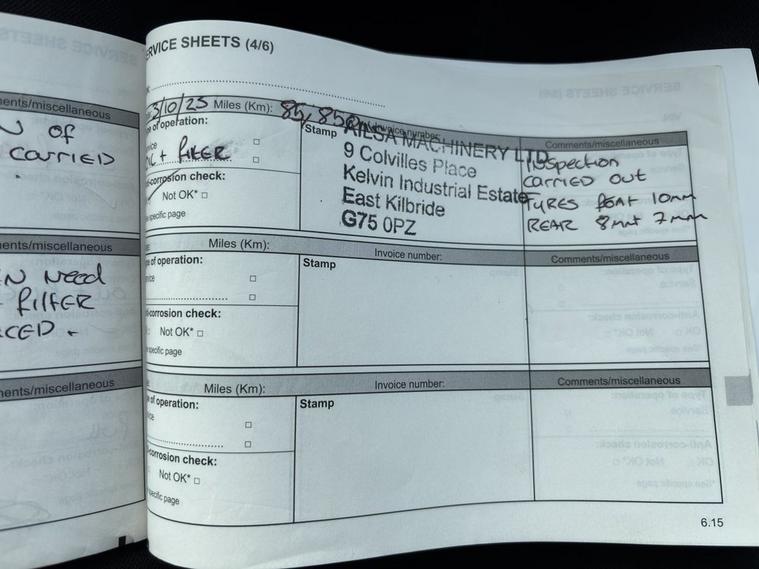 ents/miscellaneous
OF
CARRIED
ents/miscellaneous
Need
FILTER
ents/miscellaneous
ERVICE SHEETS (4/6)
3/10/23 Miles (Km): 85,850
Invoice number:
Comments/miscellaneous
e of operation:
+ FILTER
corrosion check:
Not OK* □
specific page
Stamp
AILSA MACHINERY LTD
9 Colvilles Place
Kelvin Industrial Estate
East Kilbride
G75 0PZ
Inspection
carried out
TYRES FRONT 10mm
REAR 8mm 7mm
Miles (Km):
Invoice number:
Comments/miscellaneous
e of operation:
Stamp
-corrosion check:
Not OK* □
specific page
Miles (Km):
Invoice number:
Comments/miscellaneous
of operation:
Stamp
corrosion check:
Not OK* □
specific page
6.15